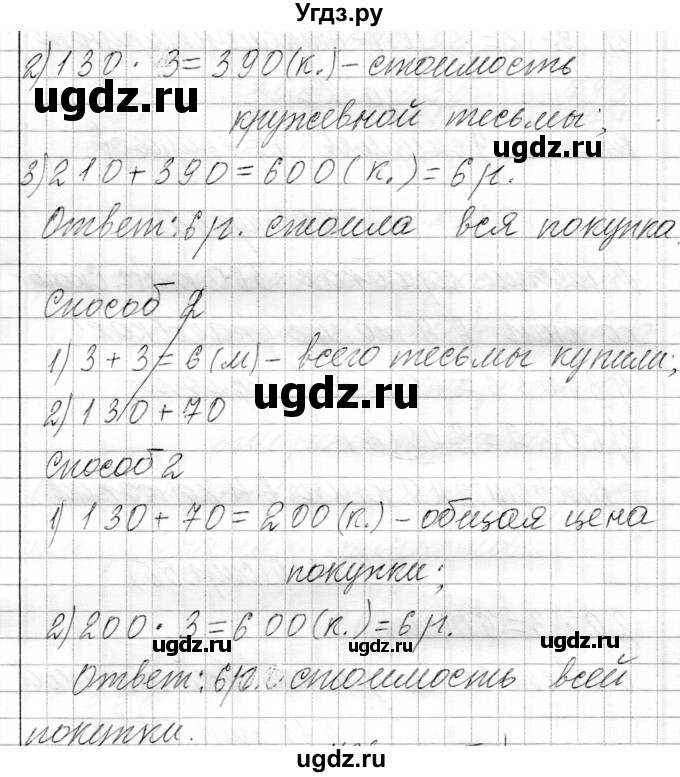 Угдз.ру
2) 130 · 3 = 390 (к.) – стоимость
ugdz.ru
кружевной тесьмы;
ugdz.ru
3) 210 + 390 = 600 (к.) = 6 р.
Ответ: 6 р. стоила вся покупка.
ugdz.ru
Способ 2
1) 3 + 3 = 6 (м) – всего тесьмы купили;
ugdz.ru
2) 130 + 70
Способ 2
1) 130 + 70 = 200 (к.) – общая цена
покупки;
2) 200 · 3 = 600 (к.) = 6 р.
ugdz.ru
ugdz.ru
Ответ: 6 р. стоимость всей
покупки.
ugdz.ru
ugdz.ru